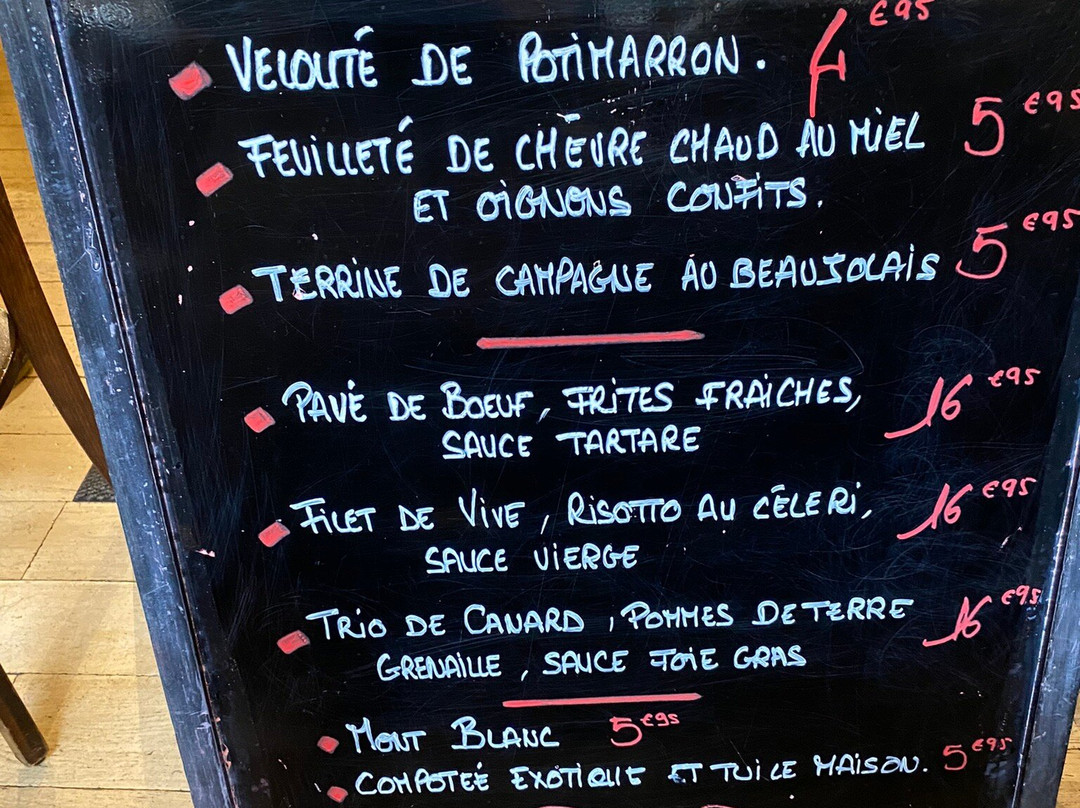 VELOUTÉ DE POTIMARRON. 4€95
FEUILLETÉ DE CHÈVRE CHAUD AU MIEL 5€95
ET OIGNONS CONFITS.
TERRINE DE CAMPAGNE AU BEAUJOLAIS 5€95
PAVÉ DE BOEUF, FRITES FRAÎCHES, 16€95
SAUCE TARTARE
FILET DE VIVE, RISOTTO AU CÉLERI, 16€95
SAUCE VIERGE
TRIO DE CANARD, POMMES DE TERRE 16€95
GRENAILLE, SAUCE FOIE GRAS
MONT BLANC 5€95
COMPOTEÉ EXOTIQUE ET TUILE MAISON. 5€95